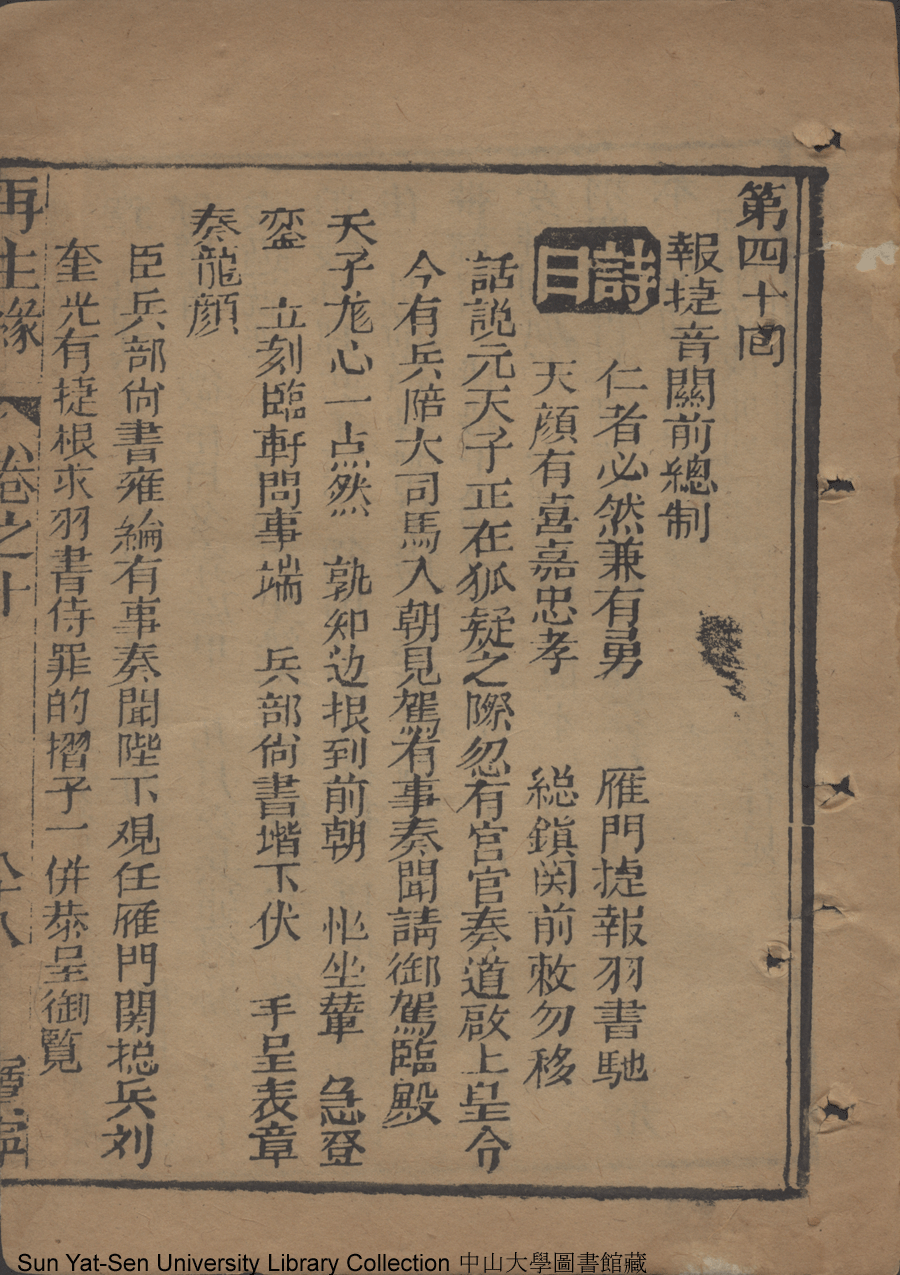 第四十囬
報捷音關前總制
詩曰
仁者必然兼有勇 雁門捷報羽書馳
天顔有喜嘉忠孝 総鎮関前敕勿移
話說元天子正在狐疑之際忽有官官奏道啟上皇今
今有兵陪大司馬入朝見駕有事奏聞請御駕臨殿
天子龙心一点然 孰知边报到前朝 忙坐輦 急登
鑾 立刻臨軒問事端 兵部尙書堦下伏 手呈表章
奏龍顔
臣兵部尙書雍綸有事奏聞陛下观任雁門関揔兵刘
奎光有捷根求羽書侍罪的摺子一倂恭呈御覧
再生緣 卷之十 八十八
Sun Yat-Sen University Library Collection 中山大學圖書館藏